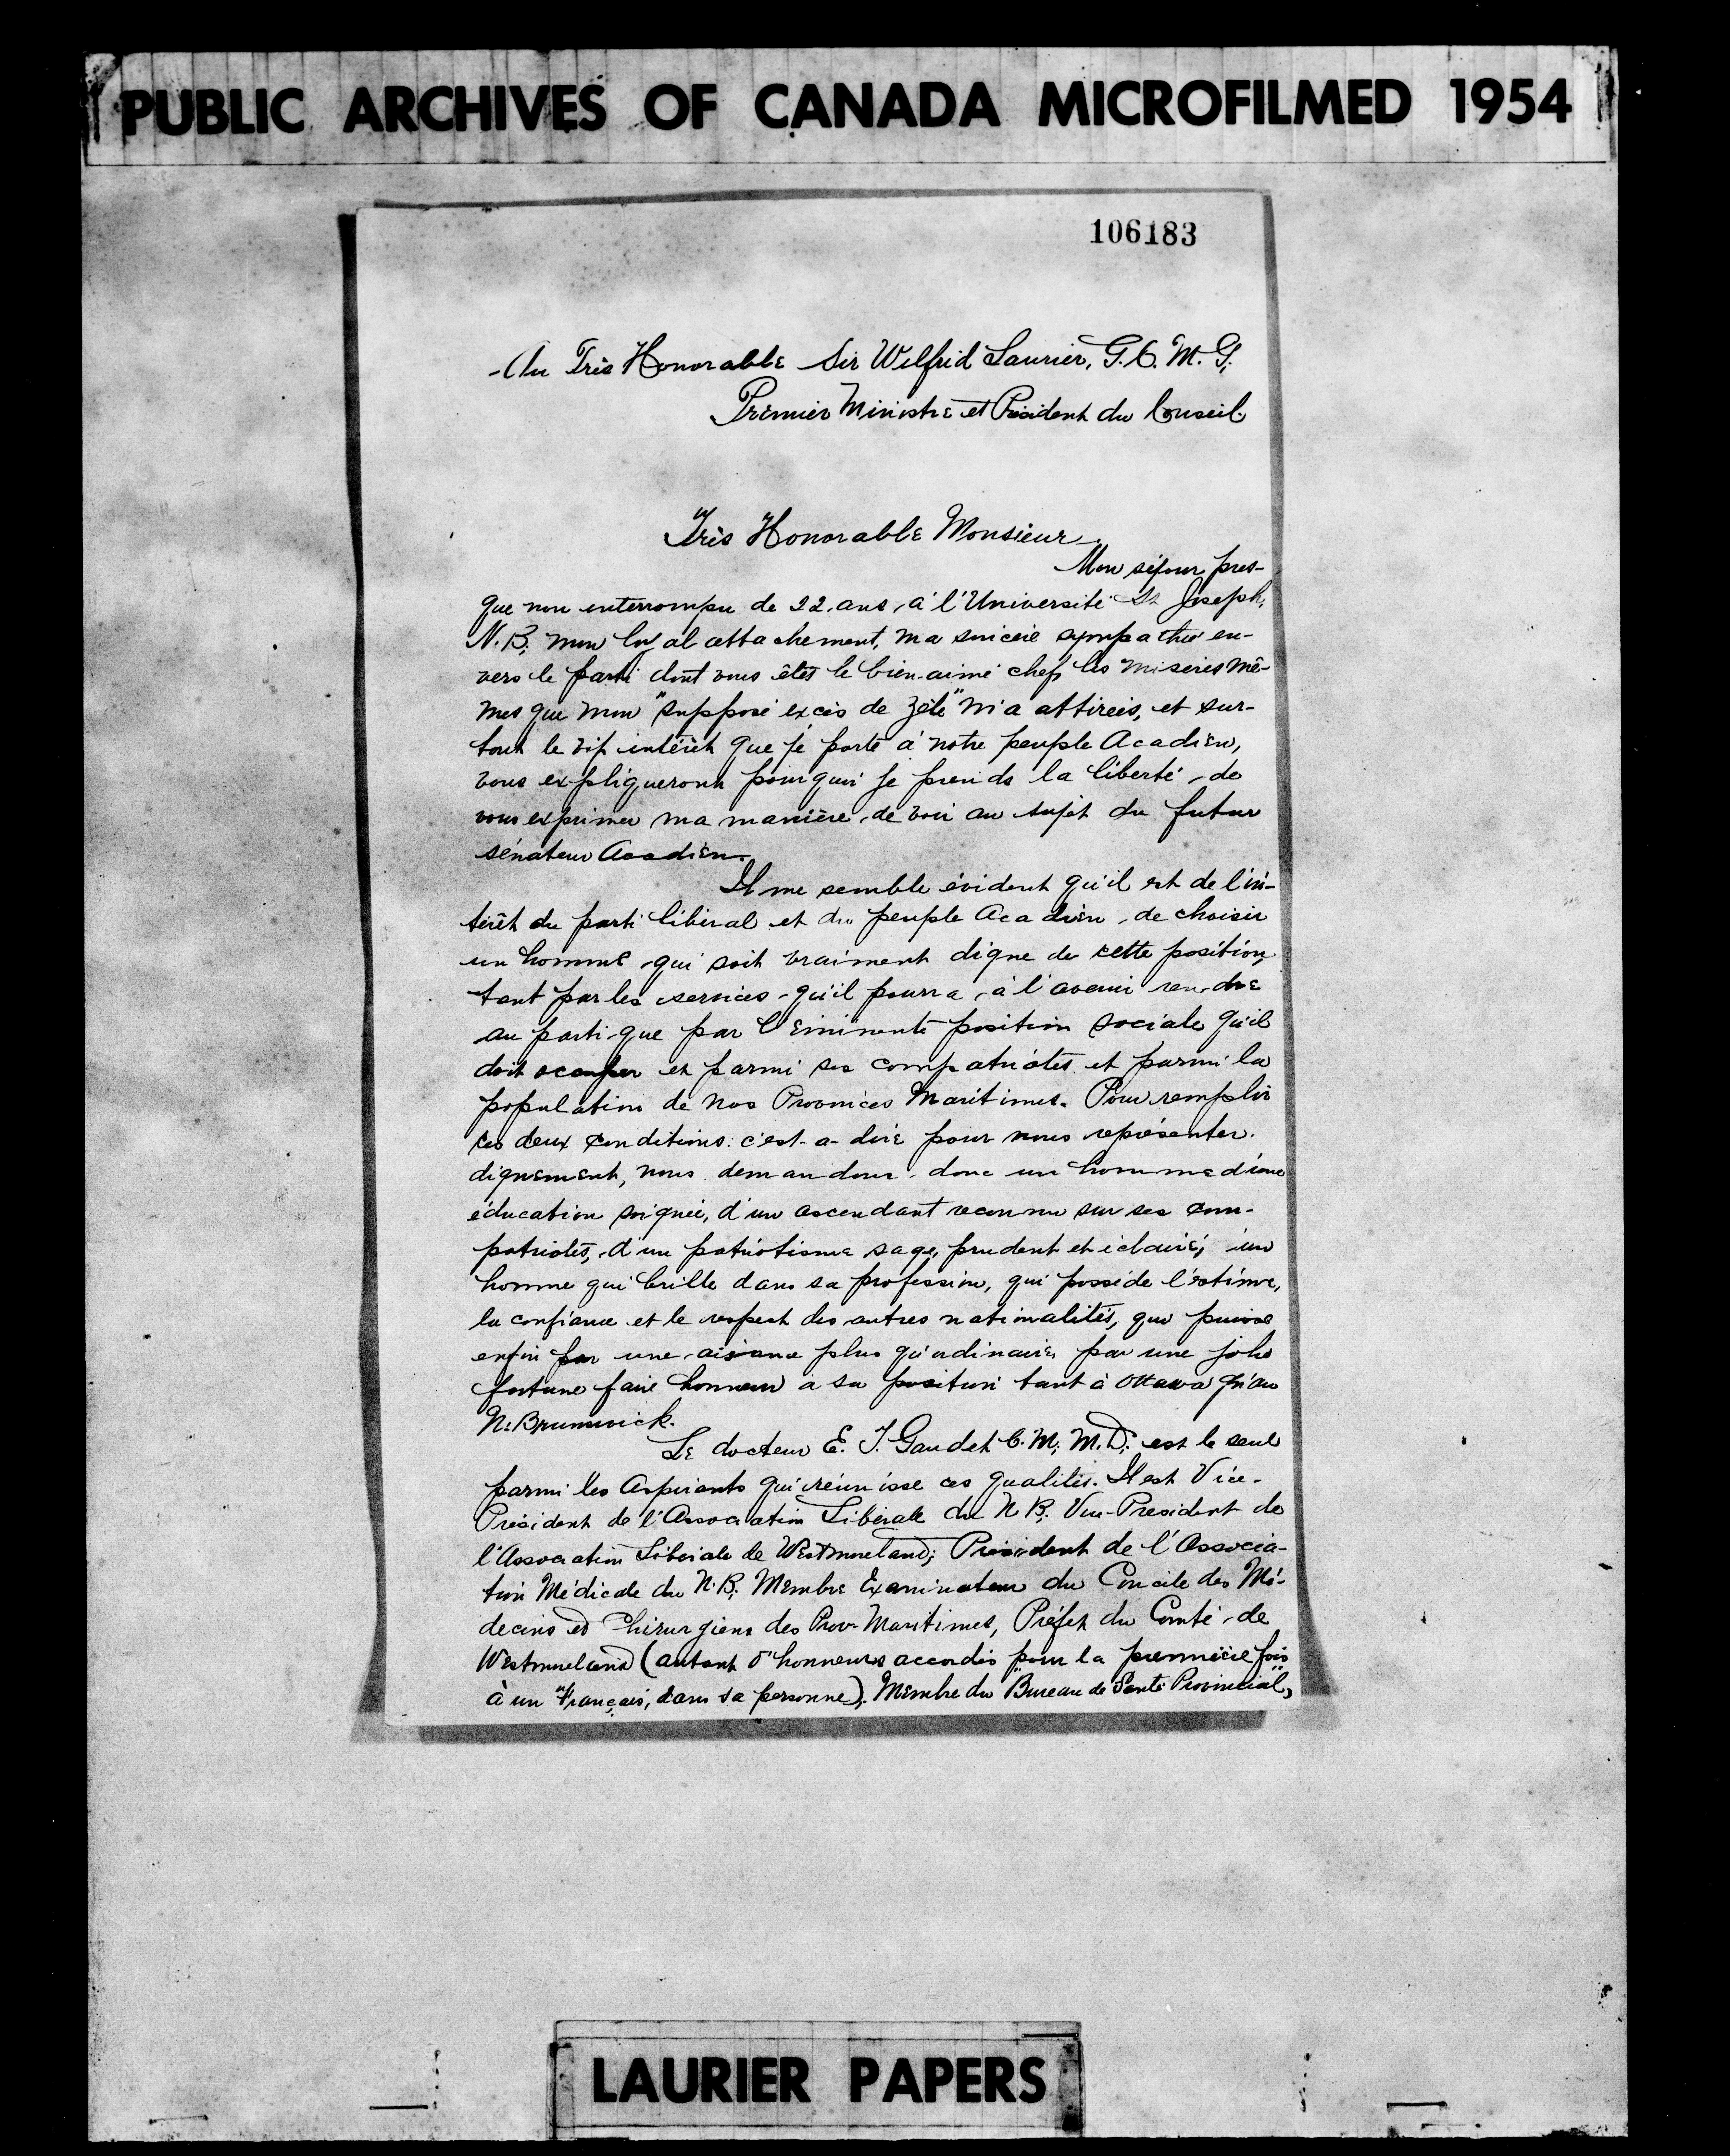 PUBLIC ARCHIVES OF CANADA MICROFILMED 1954
106183
Au Très Honorable Sir Wilfrid Laurier, G.C.M.G.
Premier Ministre et Président du Conseil
Très Honorable Monsieur,
Mon séjour pres-
que non interrompu de 22 ans, à l'Université St Joseph,
N.B; mon loyal attachement, ma sincère sympathie en-
vers le parti dont vous êtes le bien-aimé chef, les misères mê-
mes que mon "supposé excès de zèle" m'a attirées, et sur-
tout le vif intérêt que je porte à notre peuple Acadien,
vous expliqueront pourquoi je prends la liberté de
vous exprimer ma manière de voir au sujet du futur
sénateur Acadien.
Il me semble évident qu'il est de l'in-
térêt du parti libéral et du peuple Acadien de choisir
un homme qui soit vraiment digne de cette position,
tant par les services qu'il pourra à l'avenir rendre
au parti que par l'éminente position sociale qu'il
doit occuper et parmi ses compatriotes et parmi la
population de nos Provinces Maritimes. Pour remplir
ces deux conditions: c'est-a-dire pour nous représenter
dignement, nous demandons donc un homme d'une
éducation soignée, d'un ascendant reconnu sur ses com-
patriotes, d'un patriotisme sage, prudent et éclairé; un
homme qui brille dans sa profession, qui possède l'estime,
la confiance et le respect des autres nationalités, qui puisse
enfin par une aisance plus qu'ordinaire, par une jolie
fortune faire honneur à sa position tant à Ottawa qu'au
N. Brunswick.
Le docteur E. T. Gaudet C.M; M.D; est le seul
parmi les Aspirants qui réunisse ces qualités. Il est Vice-
Président de l'Association Libérale du N.B; Vice-Président de
l'Association Libérale de Westmoreland; Président de l'Associa-
tion Médicale du N.B; Membre Examinateur du Concile des Mé-
decins et Chirurgiens des Prov. Maritimes, Préfet du Comté de
Westmoreland (autant d'honneurs accordés pour la première fois
à un "Français," dans sa personne). Membre du "Bureau de Santé Provincial,"
LAURIER PAPERS